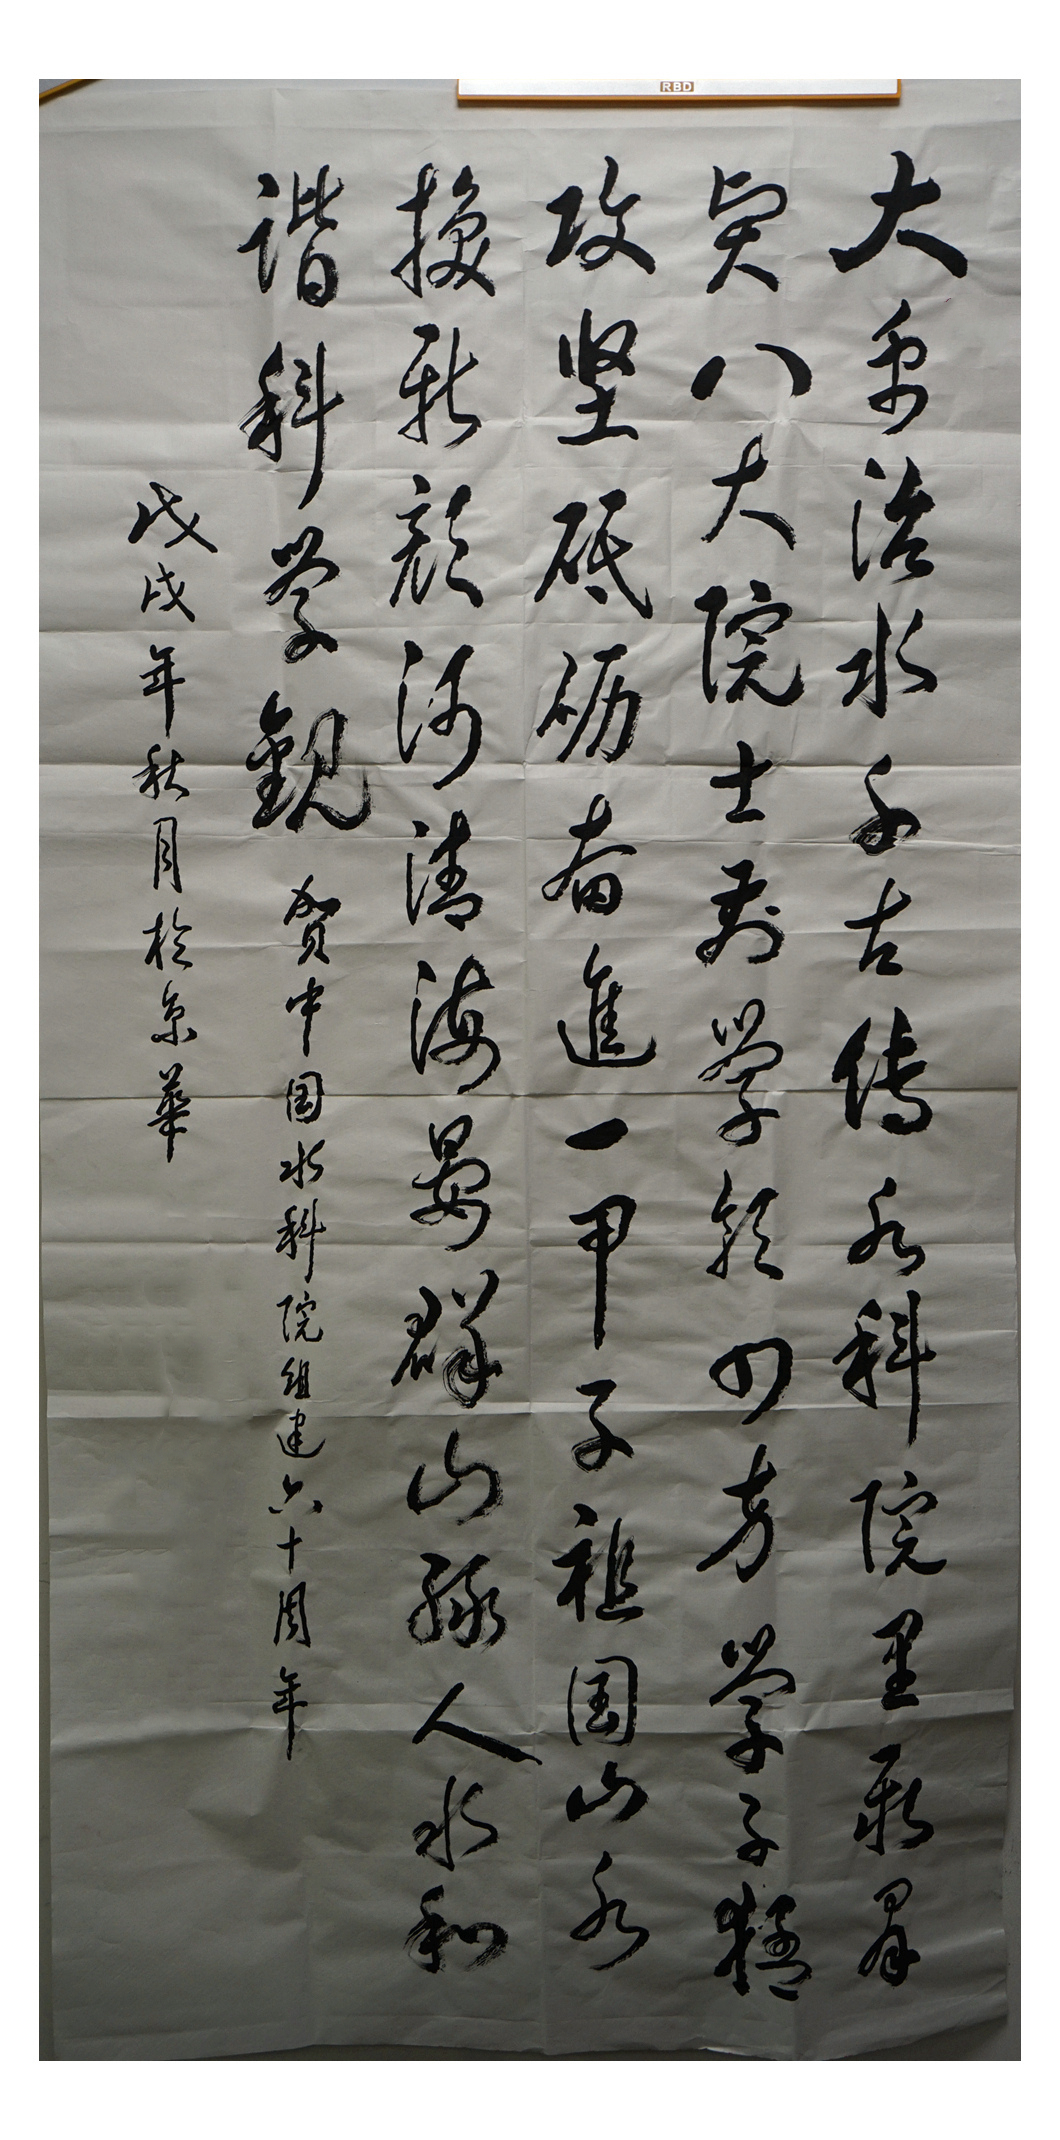 RBD
大禹治水千古传水科院里聚群
贤八大院士前学领四方学子猛
攻坚砥砺奋進一甲子祖国山水
换新颜河清海晏群山绿人水和
谐科学觀
贺中国水科院组建六十周年
戊戌年秋月於京華